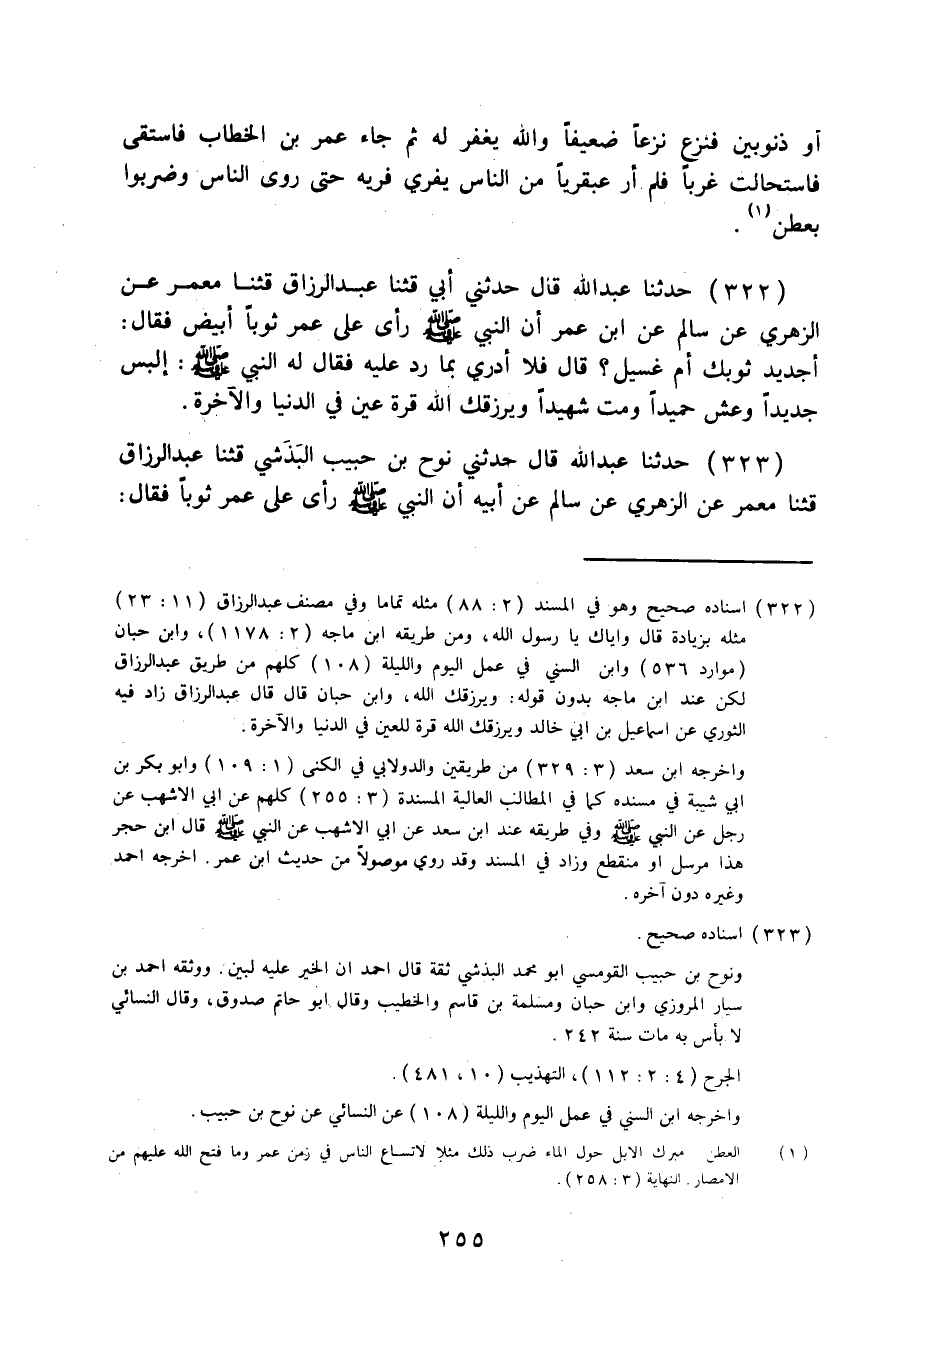 أو ذنوبين فنزع نزعاً ضعيفاً والله يغفر له ثم جاء عمر بن الخطاب فاستقى
فاستحالت غرباً فلم أر عبقرياً من الناس يفري فريه حتى روى الناس وضربوا
بعطن(١) .
(٣٢٢) حدثنا عبدالله قال حدثني أبي قثنا عبدالرزاق قثنا معمر عن
الزهري عن سالم عن ابن عمر أن النبي ﷺ رأى على عمر ثوباً أبيض فقال:
أجديد ثوبك أم غسيل؟ قال فلا أدري بما رد عليه فقال له النبي ﷺ : إلبس
جديداً وعش حميداً ومت شهيداً ويرزقك الله قرة عين في الدنيا والآخرة.
(٣٢٣) حدثنا عبدالله قال حدثني نوح بن حبيب البَذَشي قثنا عبدالرزاق
قثنا معمر عن الزهري عن سالم عن أبيه أن النبي ﷺ رأى على عمر ثوباً فقال:
(٣٢٢) اسناده صحيح وهو في المسند (٢: ٨٨) مثله تماما وفي مصنف عبدالرزاق (١١: ٢٣)
مثله بزيادة قال واياك يا رسول الله، ومن طريقه ابن ماجه (٢: ١١٧٨)، وابن حبان
(موارد ٥٣٦) وابن السني في عمل اليوم والليلة (١٠٨) كلهم من طريق عبدالرزاق
لكن عند ابن ماجه بدون قوله: ويرزقك الله، وابن حبان قال قال عبدالرزاق زاد فيه
الثوري عن اسماعيل بن ابي خالد ويرزقك الله قرة للعين في الدنيا والآخرة.
واخرجه ابن سعد (٣: ٣٢٩) من طريقين والدولابي في الكنى (١: ١٠٩) وابو بكر بن
ابي شيبة في مسنده كما في المطالب العالية المسندة (٣: ٢٥٥) كلهم عن ابي الاشهب عن
رجل عن النبي ﷺ وفي طريقه عند ابن سعد عن ابي الاشهب عن النبي ﷺ قال ابن حجر
هذا مرسل او منقطع وزاد في المسند وقد روي موصولاً من حديث ابن عمر. اخرجه احمد
وغيره دون آخره.
(٣٢٣) اسناده صحيح.
ونوح بن حبيب القومسي ابو محمد البذشي ثقة قال احمد ان الخير عليه لبين. ووثقه احمد بن
سيار المروزي وابن حبان ومسلمة بن قاسم والخطيب وقال ابو حاتم صدوق، وقال النسائي
لا بأس به مات سنة ٢٤٢ .
الجرح (٤: ٢: ١١٢)، التهذيب (١٠، ٤٨١).
واخرجه ابن السني في عمل اليوم والليلة (١٠٨) عن النسائي عن نوح بن حبيب.
(١) العطن مبرك الابل حول الماء ضرب ذلك مثلا لاتساع الناس في زمن عمر وما فتح الله عليهم من
الامصار. النهاية (٣: ٢٥٨).
٢٥٥